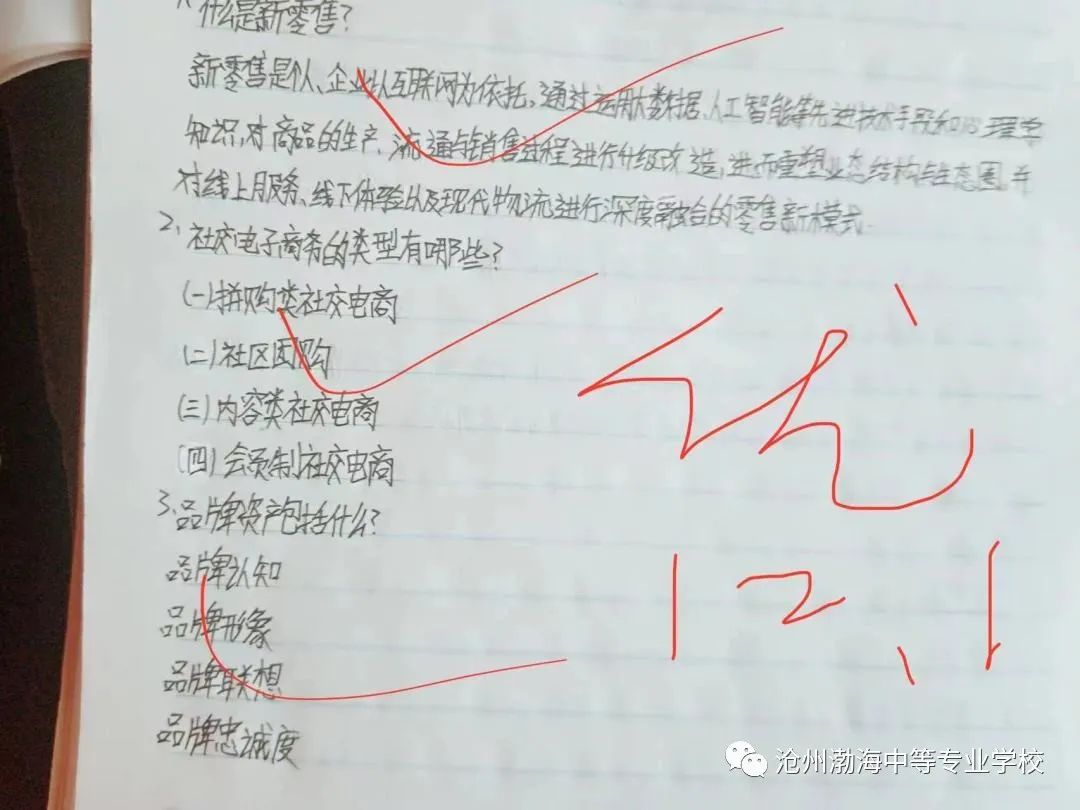 1、什么是新零售?
新零售是个人、企业以互联网为依托,通过运用大数据、人工智能等先进技术手段和心理学
知识,对商品的生产、流通与销售过程进行升级改造,进而重塑业态结构与生态圈,并
对线上服务、线下体验以及现代物流进行深度融合的零售新模式.
2、社交电子商务的类型有哪些?
(一)拼购类社交电商
(二)社区团购
(三)内容类社交电商
(四)会员制社交电商
3、品牌资产包括什么?
品牌认知
品牌形象
品牌联想
品牌忠诚度
优
12.1
沧州渤海中等专业学校